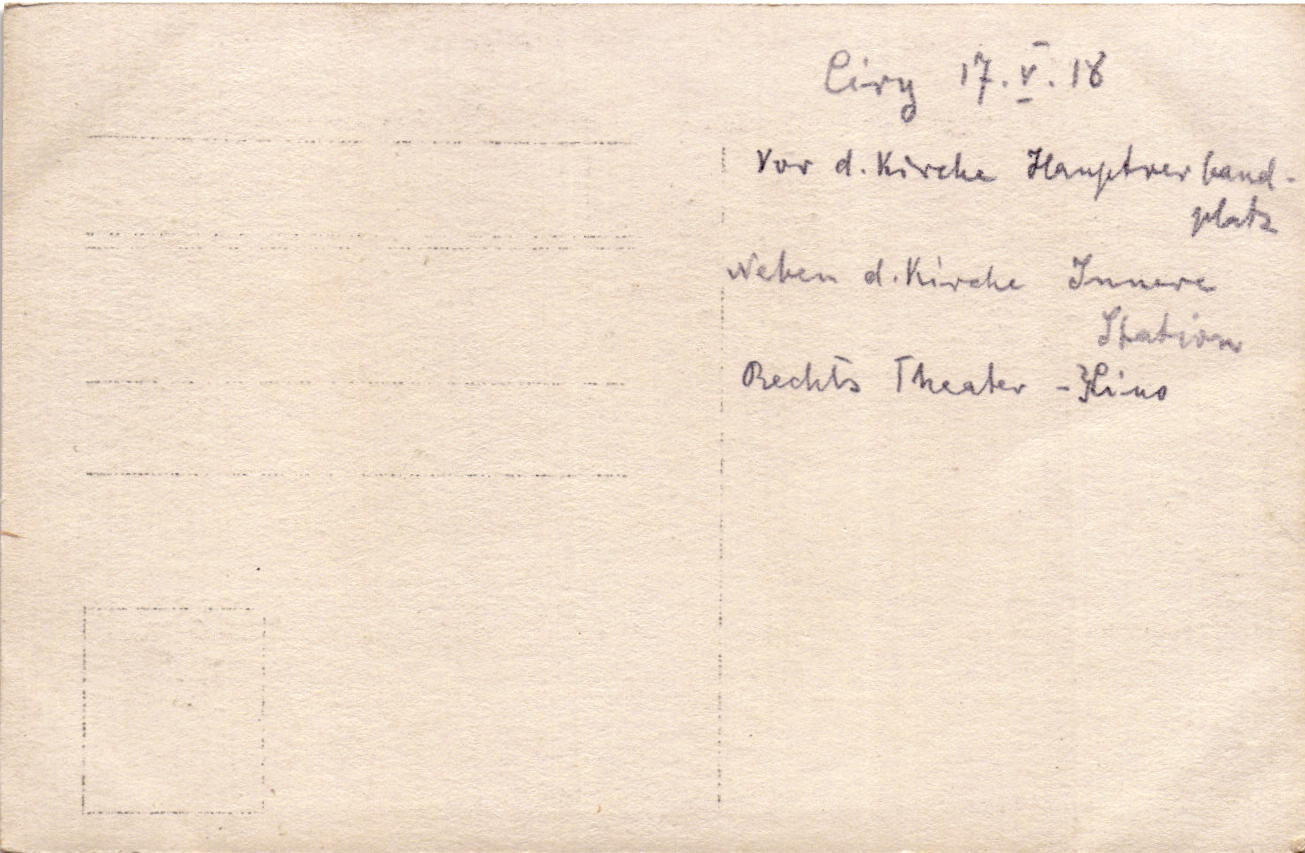 Ciry 17.V.18
Vor d. Kirche Hauptverband-
platz
Neben d. Kirche Innere
Station
Rechts Theater - Kino